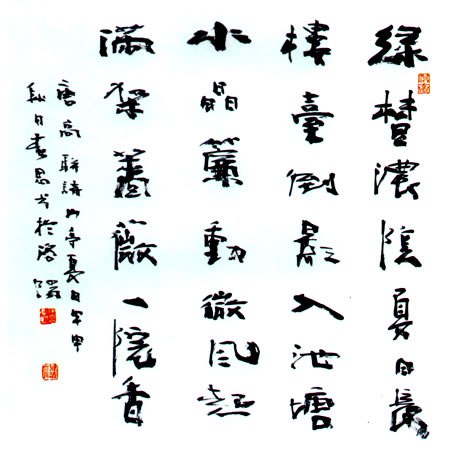 綠樹濃陰夏日長
樓臺倒影入池塘
水晶簾動微風起
滿架薔薇一院香
唐高駢詩山亭夏日
秋日